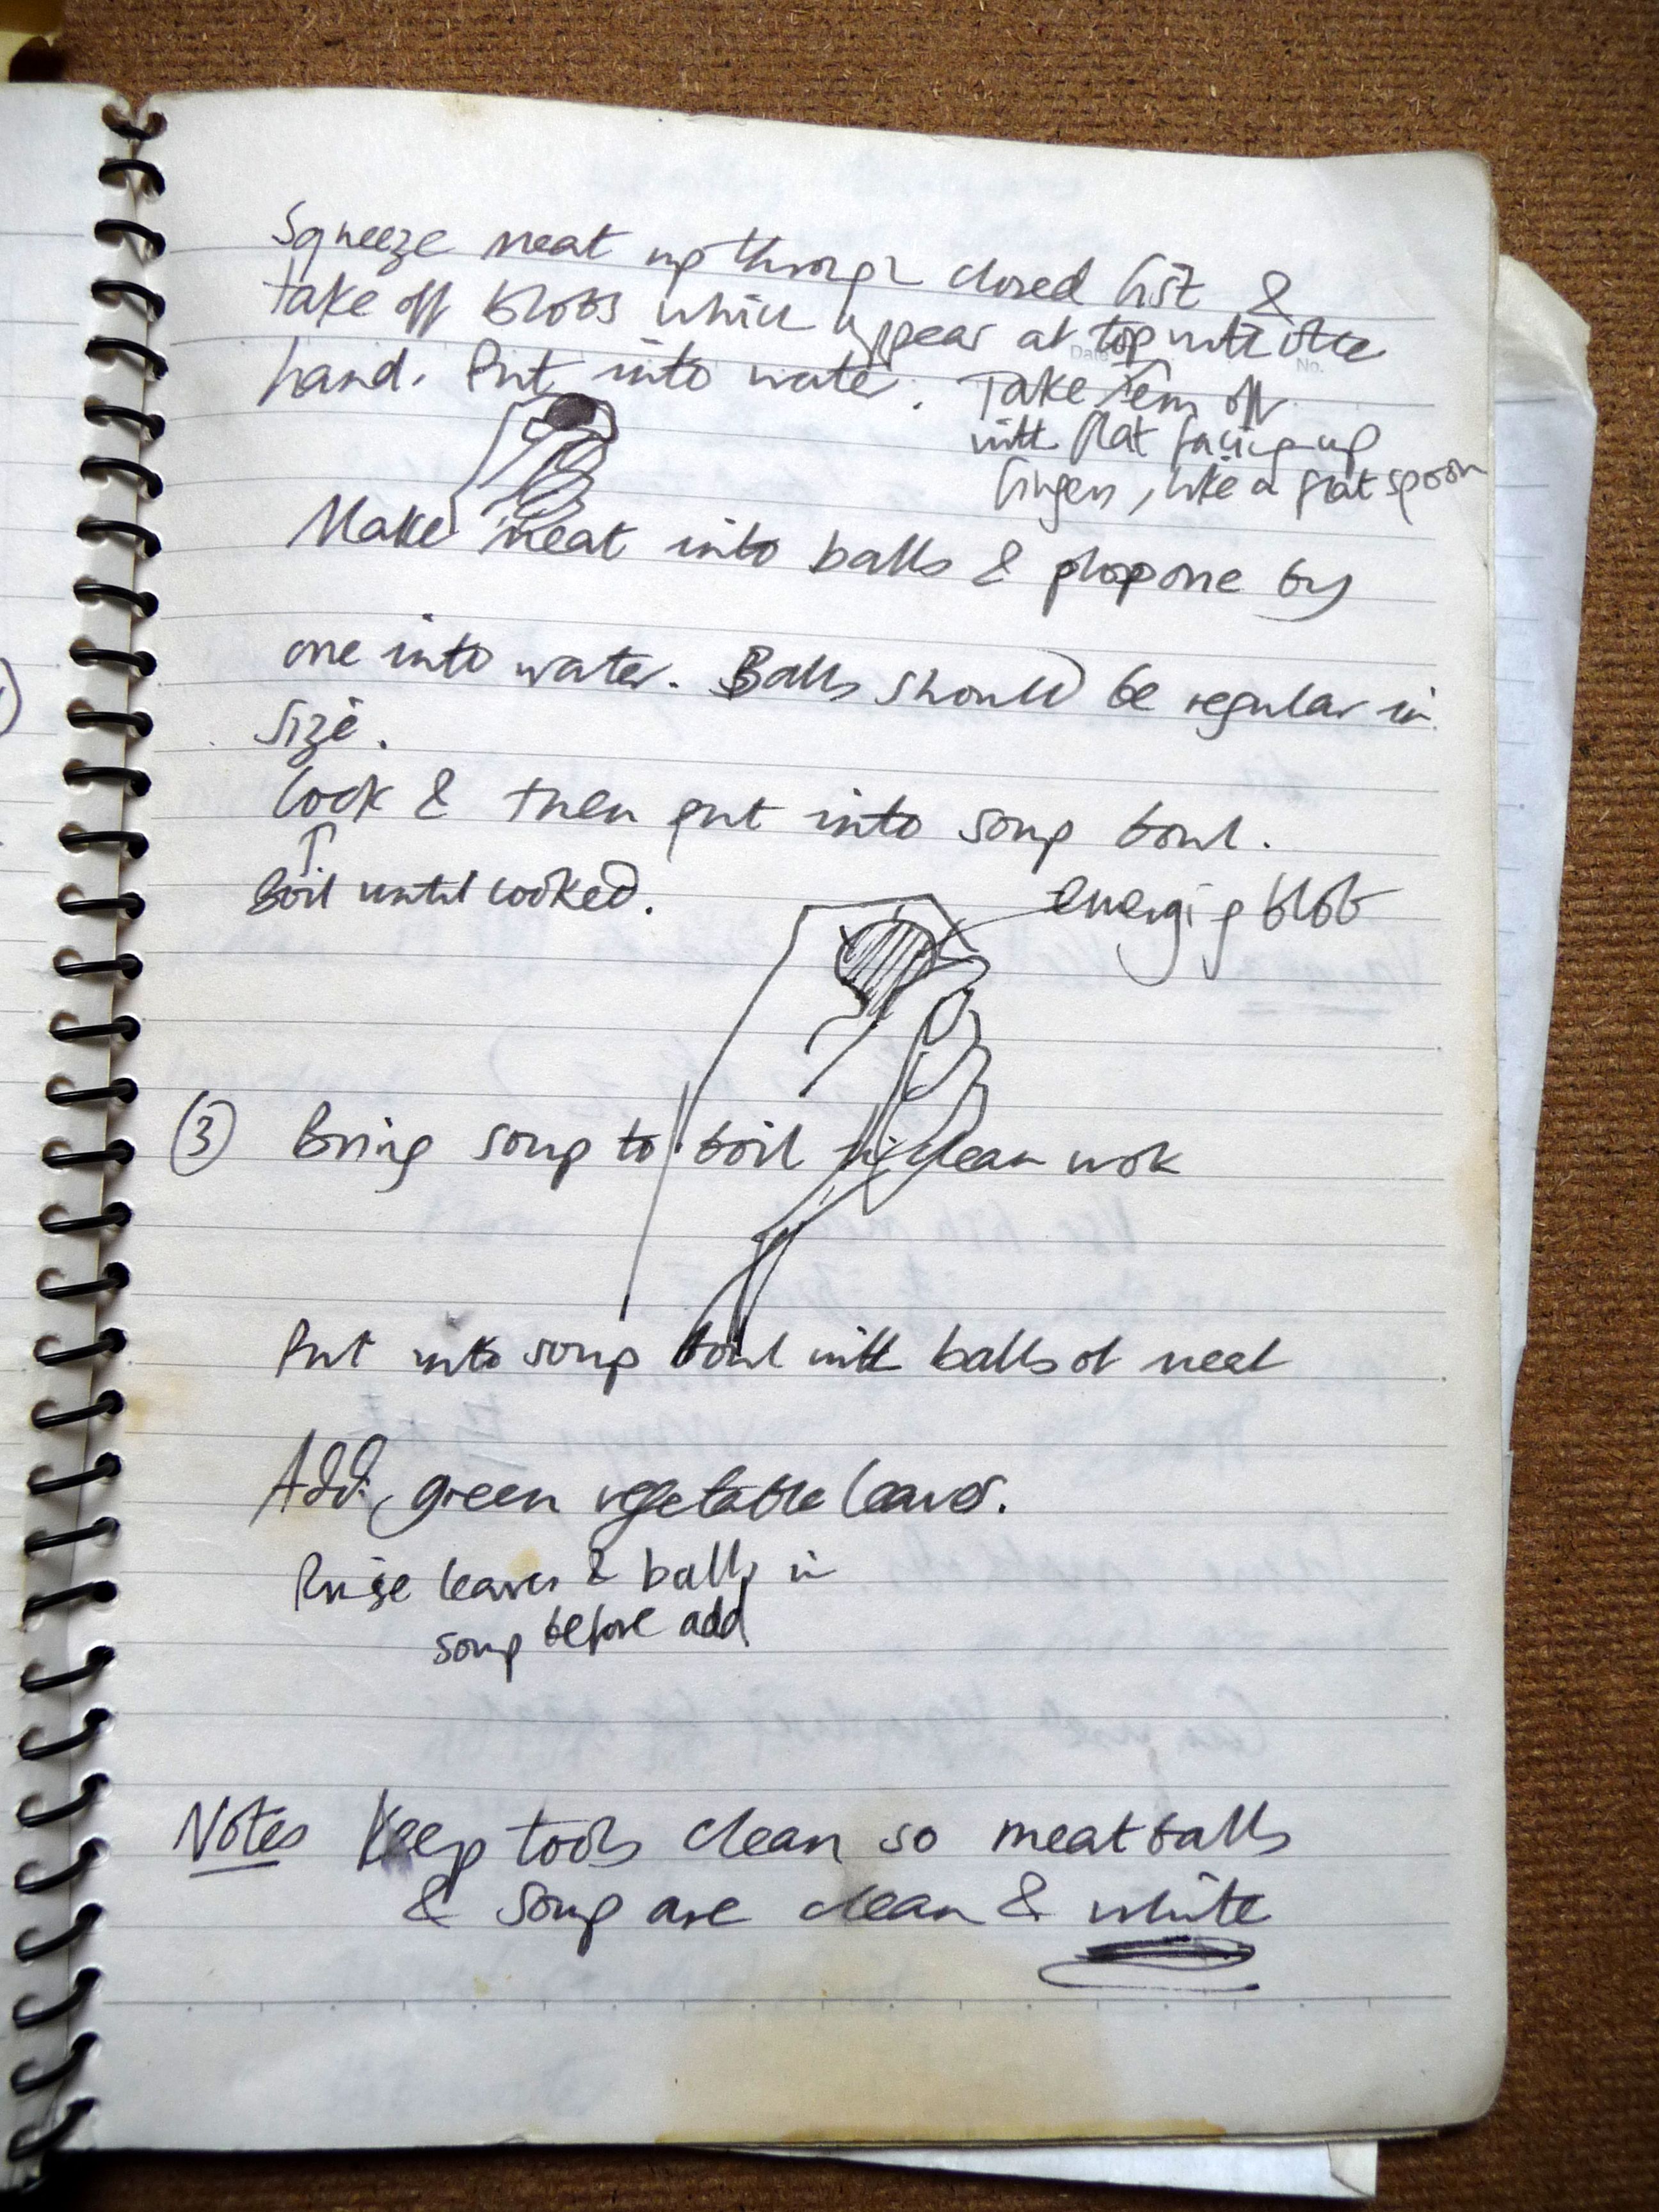 Squeeze meat up through closed fist &
take off blobs which appear at top with other
hand. Put into water. Take 'em off
with flat facing up
fingers, like a flat spoon
Make meat into balls & plop one by
one into water. Balls should be regular in
size.
Cook & then put into soup bowl.
↑
Boil until cooked.
emerging blob
③ Bring soup to boil in clean wok
Put into soup bowl with balls of meat
Add green vegetable leaves.
Rinse leaves & balls in
soup before add
Notes Keep tools clean so meatballs
& soup are clean & white
Date
No.